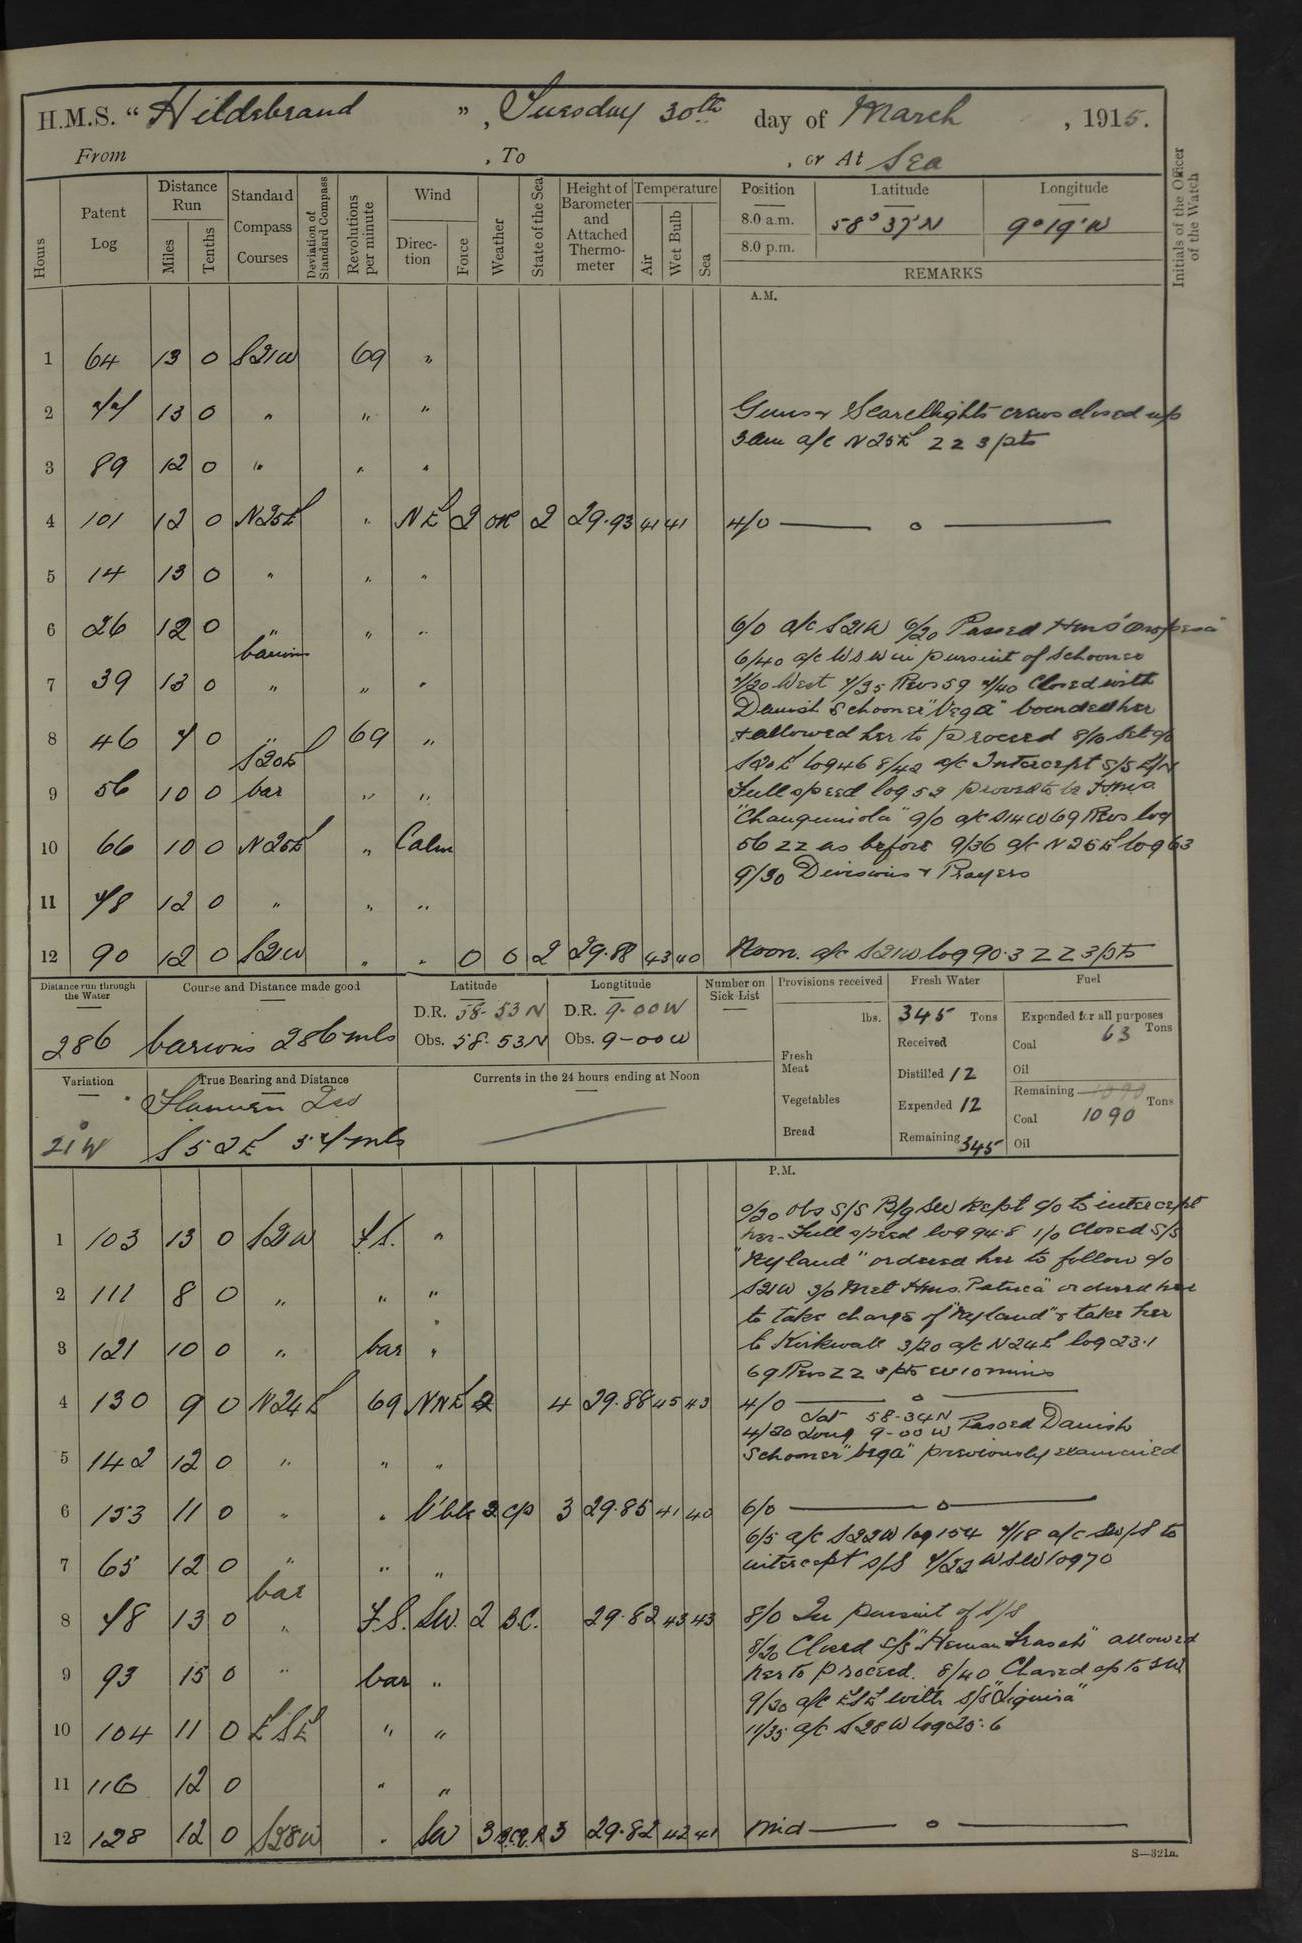 H.M.S. "Hildebrand", Tuesday 30th day of March, 1915.
From , To , or At Sea
Hours
Patent Log
Distance Run
Miles
Tenths
Standard Compass Courses
Deviation of Standard Compass
Revolutions per minute
Wind
Direction
Force
Weather
State of the Sea
Height of Barometer and Attached Thermometer
Temperature
Air
Wet Bulb
Sea
Position Latitude Longitude
8.0 a.m. 58° 37' N 9° 19' W
8.0 p.m.
REMARKS
Initials of the Officer of the Watch
A.M.
1 64 13 0 S21W 69 "
2 77 13 0 " " " Guns & Searchlights crews closed up
3am a/c N25E ZZ 3pts
3 89 12 0 " " "
4 101 12 0 N25E " NE 2 2 29.93 41 41 4/0 — o —
5 14 13 0 " " "
6 26 12 0 " " " 6/0 a/c S21W 6/20 Passed HMS
various 6/40 a/c WSW in pursuit of schooner
7 39 13 0 " " " 7/20 West 7/35 Revs 59 7/40 Closed with
Danish Schooner "Vega" boarded her
8 46 7 0 " 69 " & allowed her to proceed 8/10 Set c/o
S20E S20E log 46 8/42 a/c Intercept S/S
9 56 10 0 var " " Full speed log 52 proved to be HMS
"Changuinola" 9/0 a/c S14W 69 Revs log
10 66 10 0 N25E " Calm 56 ZZ as before 9/36 a/c N25E log 63
9/30 Divisions & Prayers
11 78 12 0 " " "
12 90 12 0 S21W " " 0 O 2 29.88 43 40 Noon. a/c S21W log 90.3 ZZ 3pts
Distance run through the Water
286
Course and Distance made good
various 286 mls
Latitude
D.R. 58-53 N
Obs. 58-53 N
Longtitude
D.R. 9-00 W
Obs. 9-00 W
Number on Sick List
Provisions received
lbs.
Fresh Meat
Vegetables
Bread
Fresh Water
345 Tons
Received
Distilled 12
Expended 12
Remaining 345
Fuel
Expended for all purposes
Coal 63 Tons
Oil
Remaining 1090 Tons
Coal 1090
Oil
Variation
21°W
True Bearing and Distance
Flannen Isd
S52E 57 mls
Currents in the 24 hours ending at Noon
P.M.
0/20 Obs S/S Bg SW kept c/o to intercept
1 103 13 0 S21W F.S. " her. Full speed log 94.8 1/0 Closed S/S
"Nyland" ordered her to follow c/o
2 111 8 0 " " " S21W 3/0 Met HMS. Patuca" ordered her
to take charge of "Nyland" & take her
3 121 10 0 " var " to Kirkwall 3/20 a/c N24E log 23.1
69 Revs ZZ 3pts ev 10 mins
4 130 9 0 N24E 69 NNE 2 4 29.88 45 43 4/0 — o —
4/20 Lat 58-34N Long 9-00 W Passed Danish
5 142 12 0 " " " Schooner "Vega" previously examined
6 153 11 0 " " V'ble 2 cp 3 29.85 41 40 6/0 — o —
6/5 a/c S22W log 154 7/18 a/c SW/S to
7 65 12 0 " " " intercept S/S 7/22 WSW log 70
var
8 78 13 0 " F.S. SW. 2 B.C. 29.82 43 43 8/0 In pursuit of S/S
8/20 Closed S/S "Herman Frasch" allowed
9 93 15 0 " var " her to proceed. 8/40 Chased up to SW
9/30 a/c ESE with S/S "Siguira"
10 104 11 0 ESE " " 11/35 a/c S28W log 25.6
11 116 12 0 " "
12 128 12 0 S28W " SW 3 3 29.82 42 41 Mid — o —
S—321a.